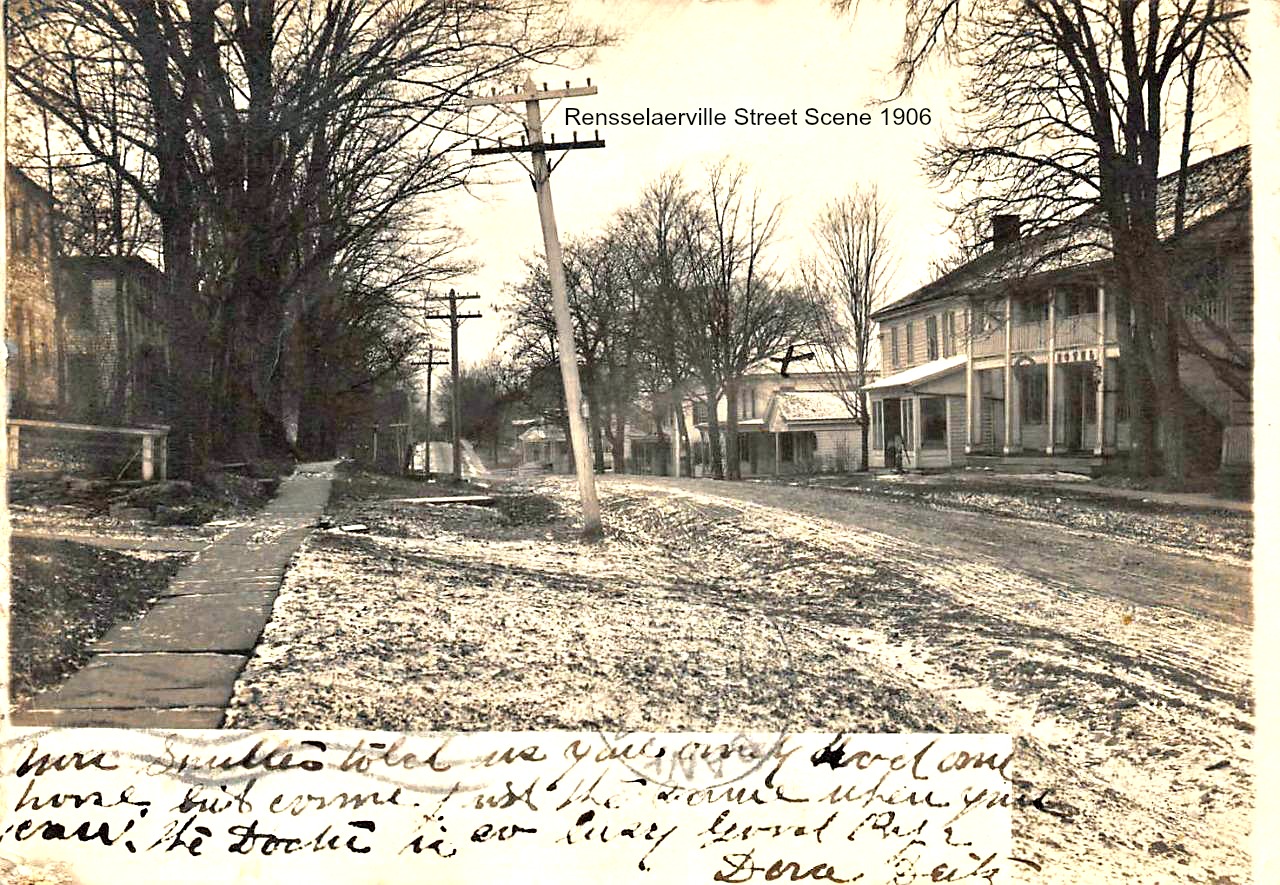 Rensselaerville Street Scene 1906
HOTEL
Mrs told us you only had one
horse but come just the same when you
can. The Doctor is so busy Good
Dora